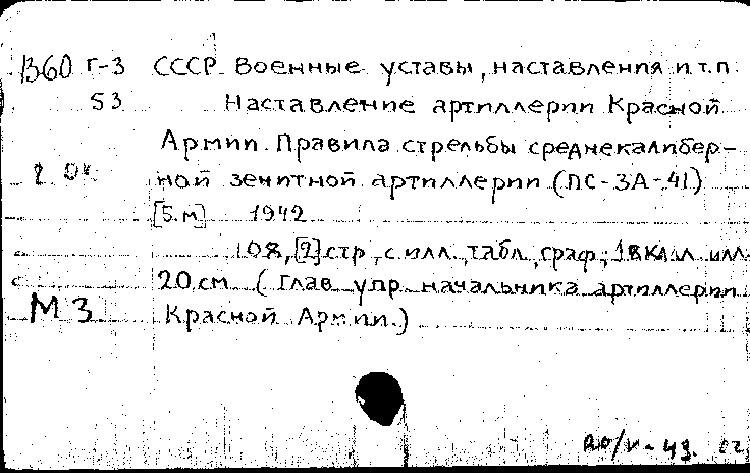 В60 Г-3 СССР. Военные уставы, наставления и т.п.
53 Наставление артиллерии Красной
Армии. Правила стрельбы среднекалибер-
ной зенитной артиллерии (ПС-ЗА-41)
[Б.м] 1942
108, [2] стр, с илл., табл, граф; 1 вкл. л илл.
20 см (Глав. упр. начальника артиллерии
М 3 Красной Армии.)